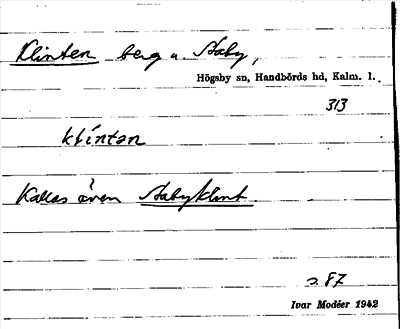 Klinten berg u. Staby,
Högsby sn, Handbörds hd, Kalm. l.
313
klíntan
Kallas även Stabyklint.
s. 87
Ivar Modéer 1942